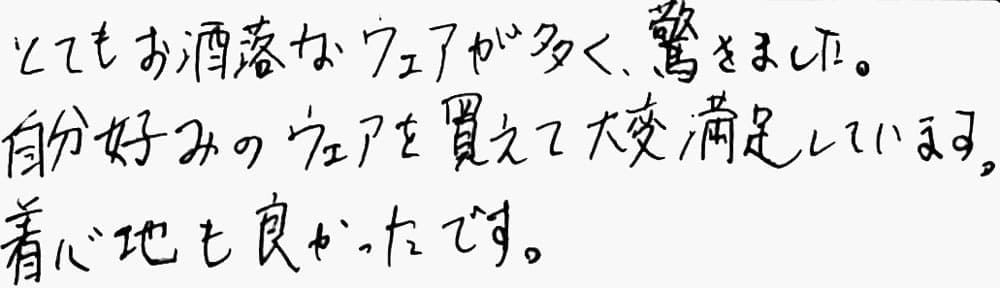 とてもお洒落なウェアが多く、驚きました。
自分好みのウェアを買えて大変満足しています。
着心地も良かったです。